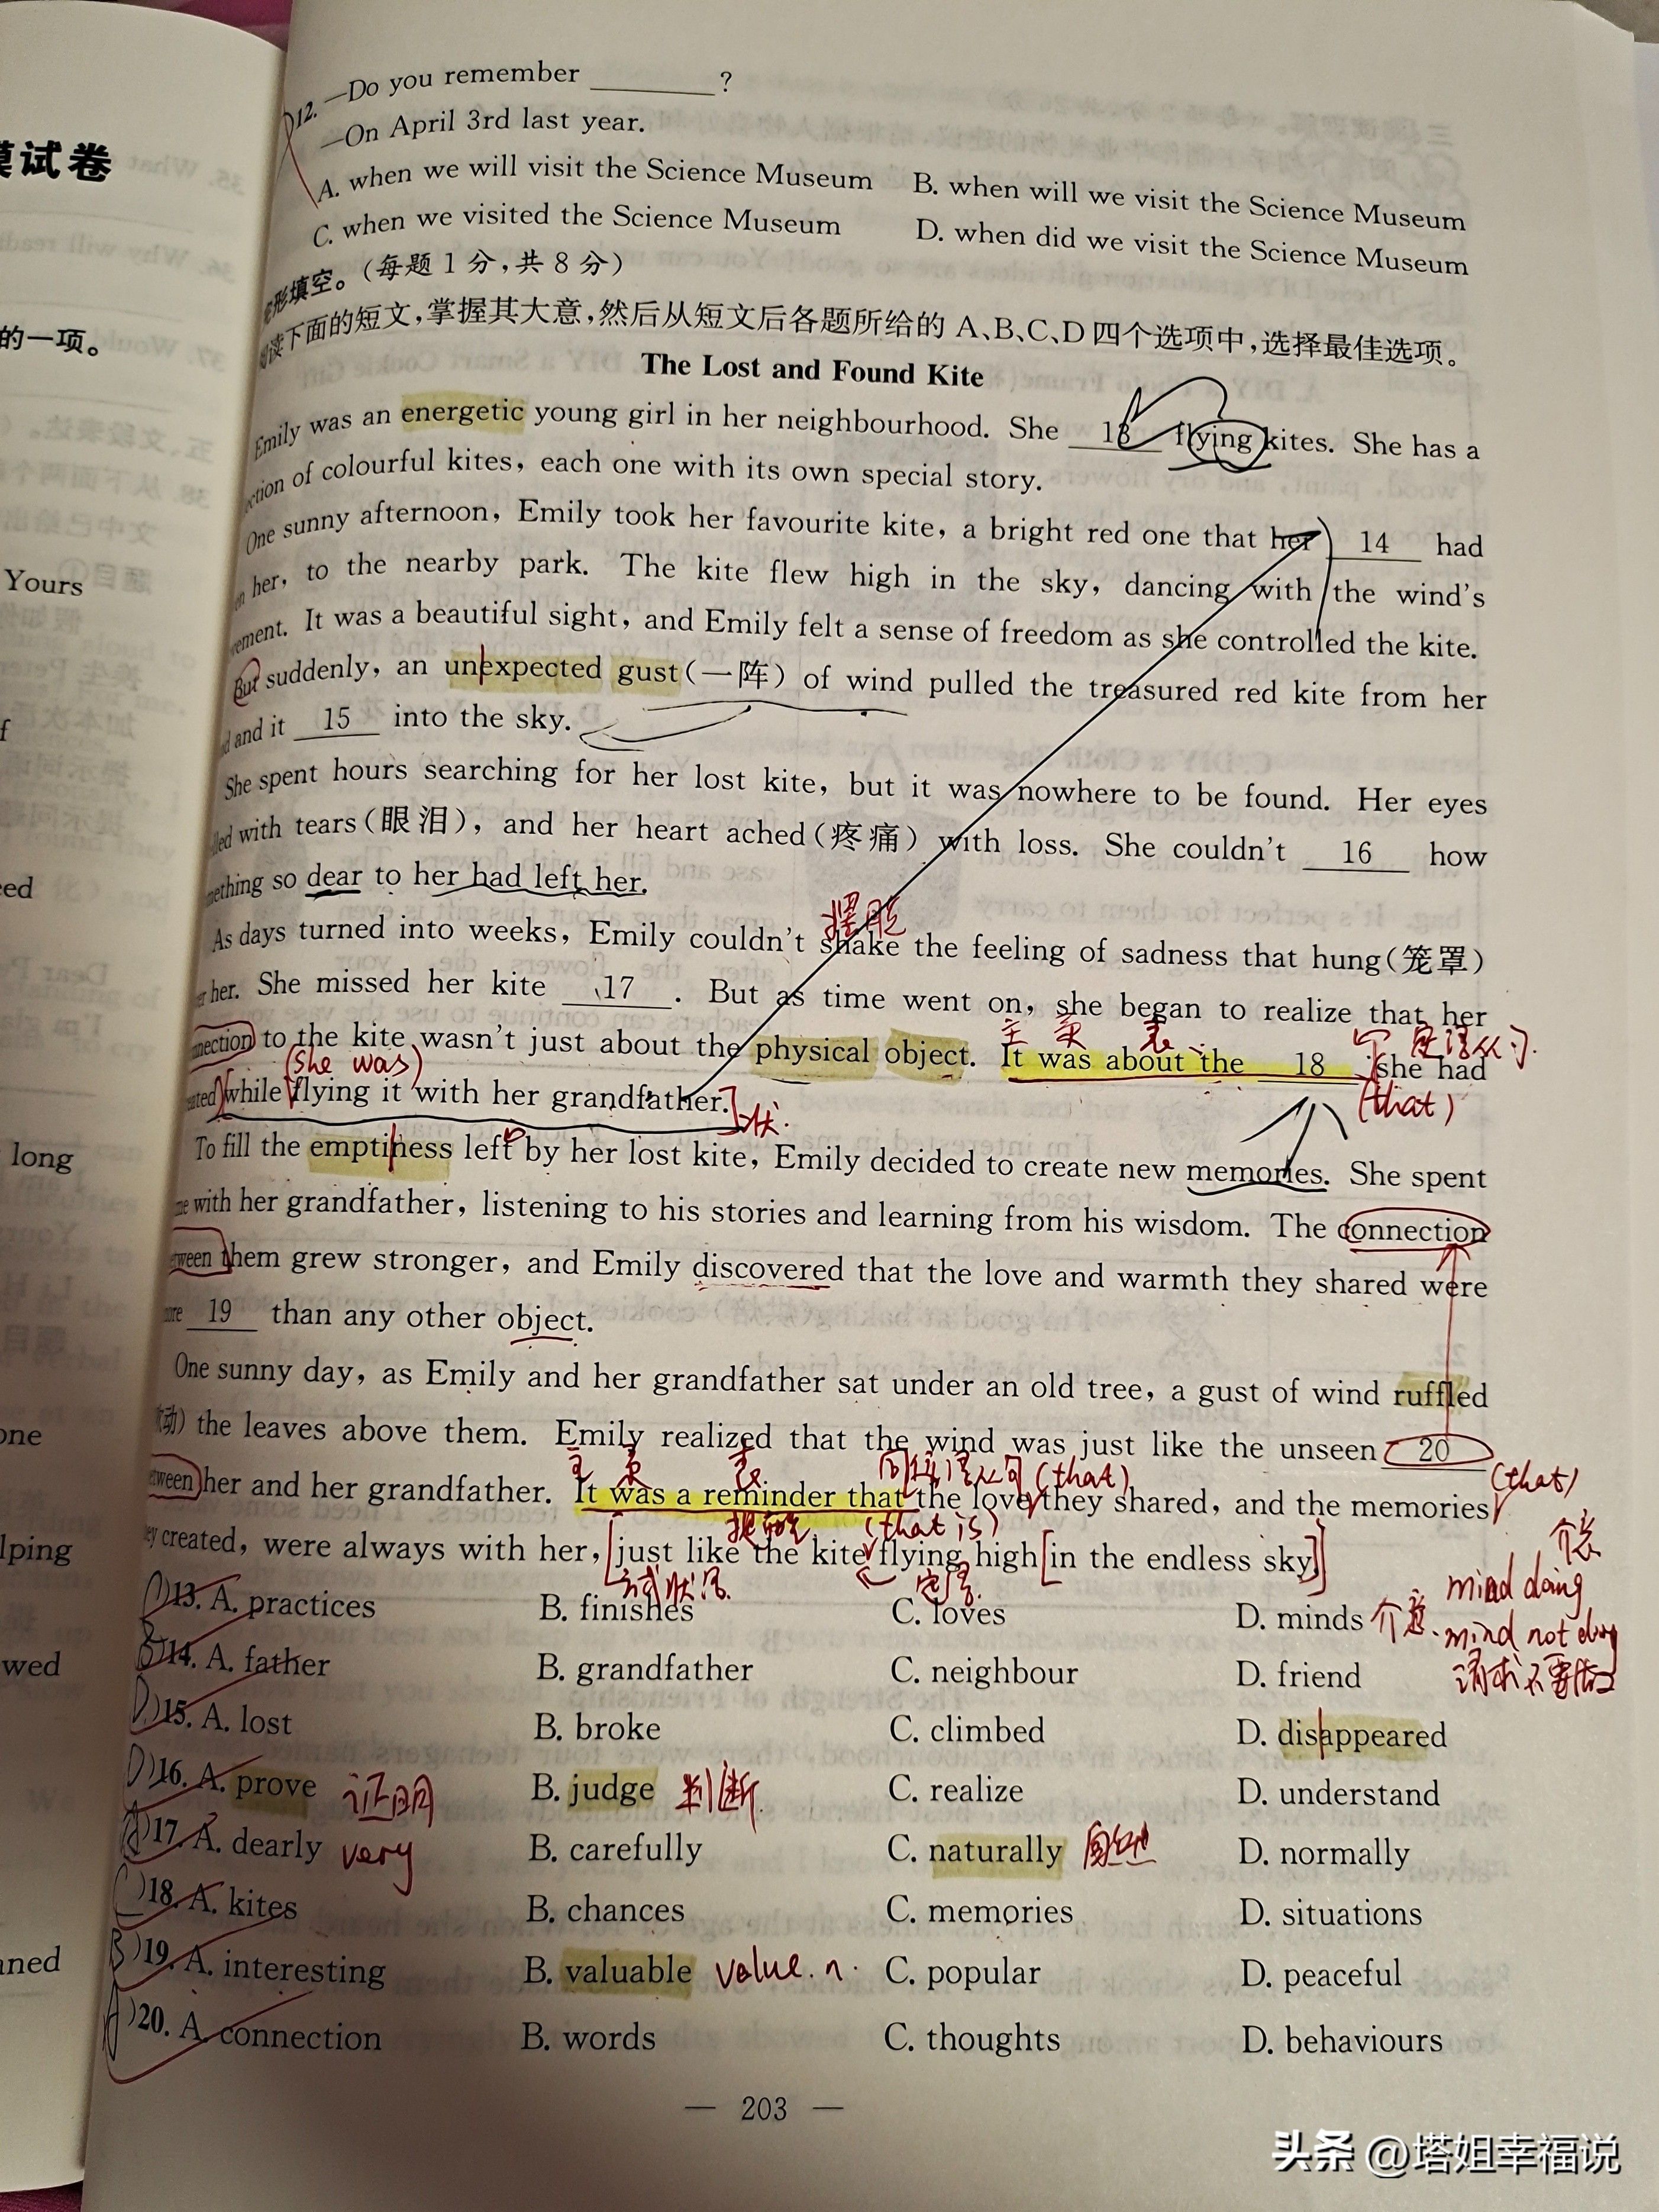 12. —Do you remember ________ ?
—On April 3rd last year.
A. when we will visit the Science Museum B. when will we visit the Science Museum
C. when we visited the Science Museum D. when did we visit the Science Museum
形填空。(每题1分,共8分)
读下面的短文,掌握其大意,然后从短文后各题所给的 A、B、C、D 四个选项中,选择最佳选项。
The Lost and Found Kite
Emily was an energetic young girl in her neighbourhood. She 13 flying kites. She has a
ction of colourful kites, each one with its own special story.
One sunny afternoon, Emily took her favourite kite, a bright red one that her 14 had
n her, to the nearby park. The kite flew high in the sky, dancing with the wind's
vement. It was a beautiful sight, and Emily felt a sense of freedom as she controlled the kite.
But suddenly, an unexpected gust(一阵) of wind pulled the treasured red kite from her
d and it 15 into the sky.
She spent hours searching for her lost kite, but it was nowhere to be found. Her eyes
lled with tears(眼泪), and her heart ached(疼痛) with loss. She couldn't 16 how
mething so dear to her had left her.
摆脱
As days turned into weeks, Emily couldn't shake the feeling of sadness that hung(笼罩)
er her. She missed her kite 17 . But as time went on, she began to realize that her
nnection to the kite wasn't just about the physical object. It was about the 18 she had
(she was)
主 系 表 定语从句
(that)
ated while flying it with her grandfather.
状.
To fill the emptiness left by her lost kite, Emily decided to create new memories. She spent
me with her grandfather, listening to his stories and learning from his wisdom. The connection
tween them grew stronger, and Emily discovered that the love and warmth they shared were
more 19 than any other object.
One sunny day, as Emily and her grandfather sat under an old tree, a gust of wind ruffled
动) the leaves above them. Emily realized that the wind was just like the unseen 20
主 系 表 同位语从句 (that) (that)
tween her and her grandfather. It was a reminder that the love they shared, and the memories
(that is)
ey created, were always with her, just like the kite flying high in the endless sky.
C 13. A. practices B. finishes C. loves D. minds 介意.
介意
mind doing
mind not doing
B 14. A. father B. grandfather C. neighbour D. friend
D 15. A. lost B. broke C. climbed D. disappeared
D 16. A. prove 证明 B. judge 判断 C. realize D. understand
A 17. A. dearly very B. carefully C. naturally 自然地 D. normally
C 18. A. kites B. chances C. memories D. situations
B 19. A. interesting B. valuable value. n. C. popular D. peaceful
A 20. A. connection B. words C. thoughts D. behaviours
— 203 —
模试卷
的一项。
Yours
f
eed
long
one
lping
wed
aned
头条 @塔姐幸福说